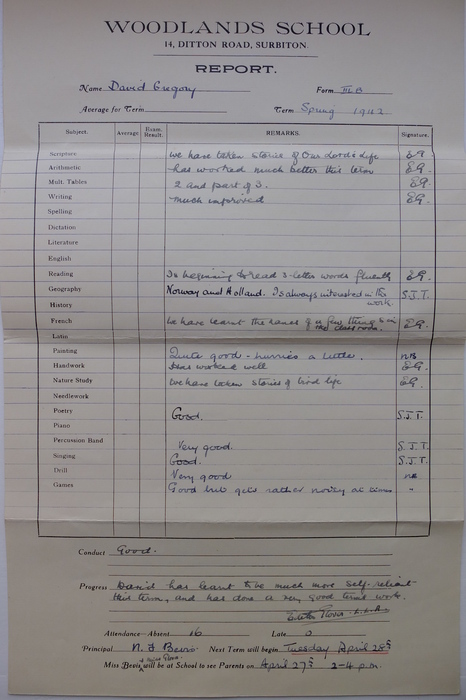 WOODLANDS SCHOOL
14, DITTON ROAD, SURBITON.
REPORT.
Name David Gregory Form III B
Average for Term Term Spring 1942
Subject. Average. Exam. Result. REMARKS. Signature.
Scripture we have taken stories of Our Lord's life E.G.
Arithmetic has worked much better this term E.G.
Mult. Tables 2 and part of 3. E.G.
Writing much improved E.G.
Spelling
Dictation
Literature
English
Reading Is beginning to read 3-letter words fluently E.G.
Geography Norway and Holland. Is always interested in the work. S.J.T.
History
French we have learnt the names of a few things in the classroom. E.G.
Latin
Painting Quite good - hurries a little. NB
Handwork Has worked well E.G.
Nature Study we have taken stories of bird life E.G.
Needlework
Poetry Good. S.J.T.
Piano
Percussion Band Very good. S.J.T.
Singing Good. S.J.T.
Drill Very good
Games Good but gets rather noisy at times "
Conduct Good.
Progress David has learnt to be much more self-reliant
this term, and has done a very good term's work.
Attendance—Absent 16 Late 0
Principal N. F. Bevis. Next Term will begin Tuesday April 28th
Miss Bevis will be at School to see Parents on April 27th 2-4 p.m.